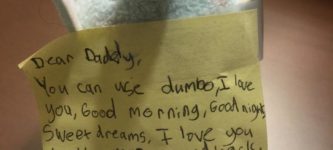 Dear Daddy,
You can use dumbo, I love
you, Good morning, Good night
Sweet dreams, I love you